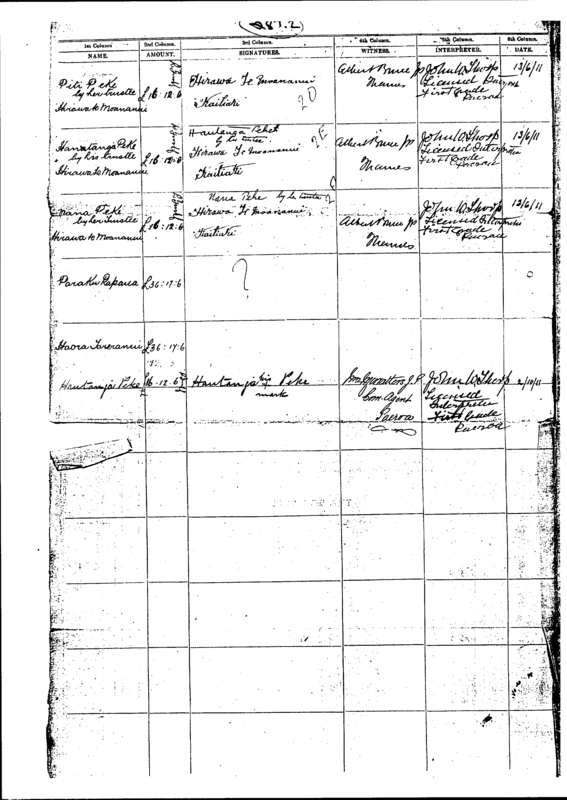 (287.2)
1st Column. 2nd Column. 3rd Column. 4th Column. 5th Column. 6th Column.
NAME. AMOUNT. SIGNATURES. WITNESS. INTERPRETER. DATE.
Piti Peke
by her trustee
Hirawa te Moananui
£16:12:6
Hirawa Te Moananui
Kaitiaki
2D
Albert Bruce JP
Thames
John W Thorp
Licensed
First Grade
Paeroa
13/6/11
Hautanga Peke
by his trustee
Hirawa te Moananui
£16:12:6
Hautanga Peke
by his trustee
Hirawa Te Moananui
Kaitiaki
2E
Albert Bruce JP
Thames
John W Thorp
Licensed Interpreter
First Grade
Paeroa
13/6/11
Nana Peke
by her trustee
Hirawa te Moananui
£16:12:6
Nana Peke by
Hirawa Te Moananui
Kaitiaki
Albert Bruce JP
Thames
John W Thorp
Licensed Interpreter
First Grade
Paeroa
13/6/11
Paraku Rapana £36:17:6
?
Haora Tareranui £36:17:6
Hautanga Peke £16.12.6 Hautanga his Peke
mark
J.P.
Com. Agent
Paeroa
John W Thorp
Licensed
Interpreter
First Grade
Paeroa
2/10/11